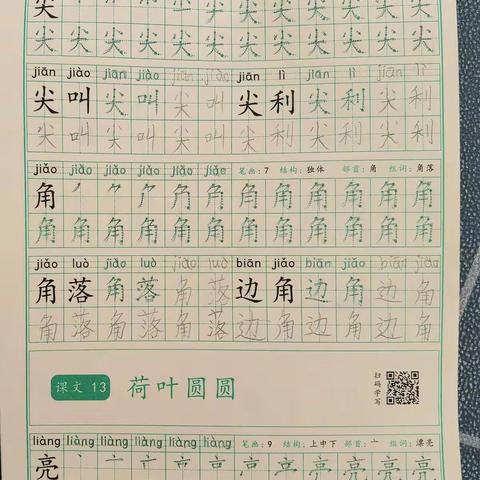 尖 尖 尖 尖 尖 尖 尖 尖 尖 尖 尖
尖 尖 尖 尖 尖 尖 尖 尖 尖 尖 尖 尖
jiān jiào jiān jiào jiān jiào jiān lì jiān lì jiān lì
尖 叫 尖 叫 尖 叫 尖 利 尖 利 尖 利
尖 叫 尖 叫 尖 叫 尖 利 尖 利 尖 利
jiǎo jiǎo jiǎo jiǎo jiǎo jiǎo 笔画：7 结构：独体 部首：角 组词：角落
角 角 角 角 角 角 角 角 角
角 角 角 角 角 角 角 角 角 角 角 角
jiǎo luò jiǎo luò jiǎo luò biān jiǎo biān jiǎo biān jiǎo
角 落 角 落 角 落 边 角 边 角 边 角
角 落 角 落 角 落 边 角 边 角 边 角
课文 13 荷叶圆圆 扫码学写
liàng liàng liàng liàng liàng liàng 笔画：9 结构：上中下 部首：亠 组词：漂亮
亮